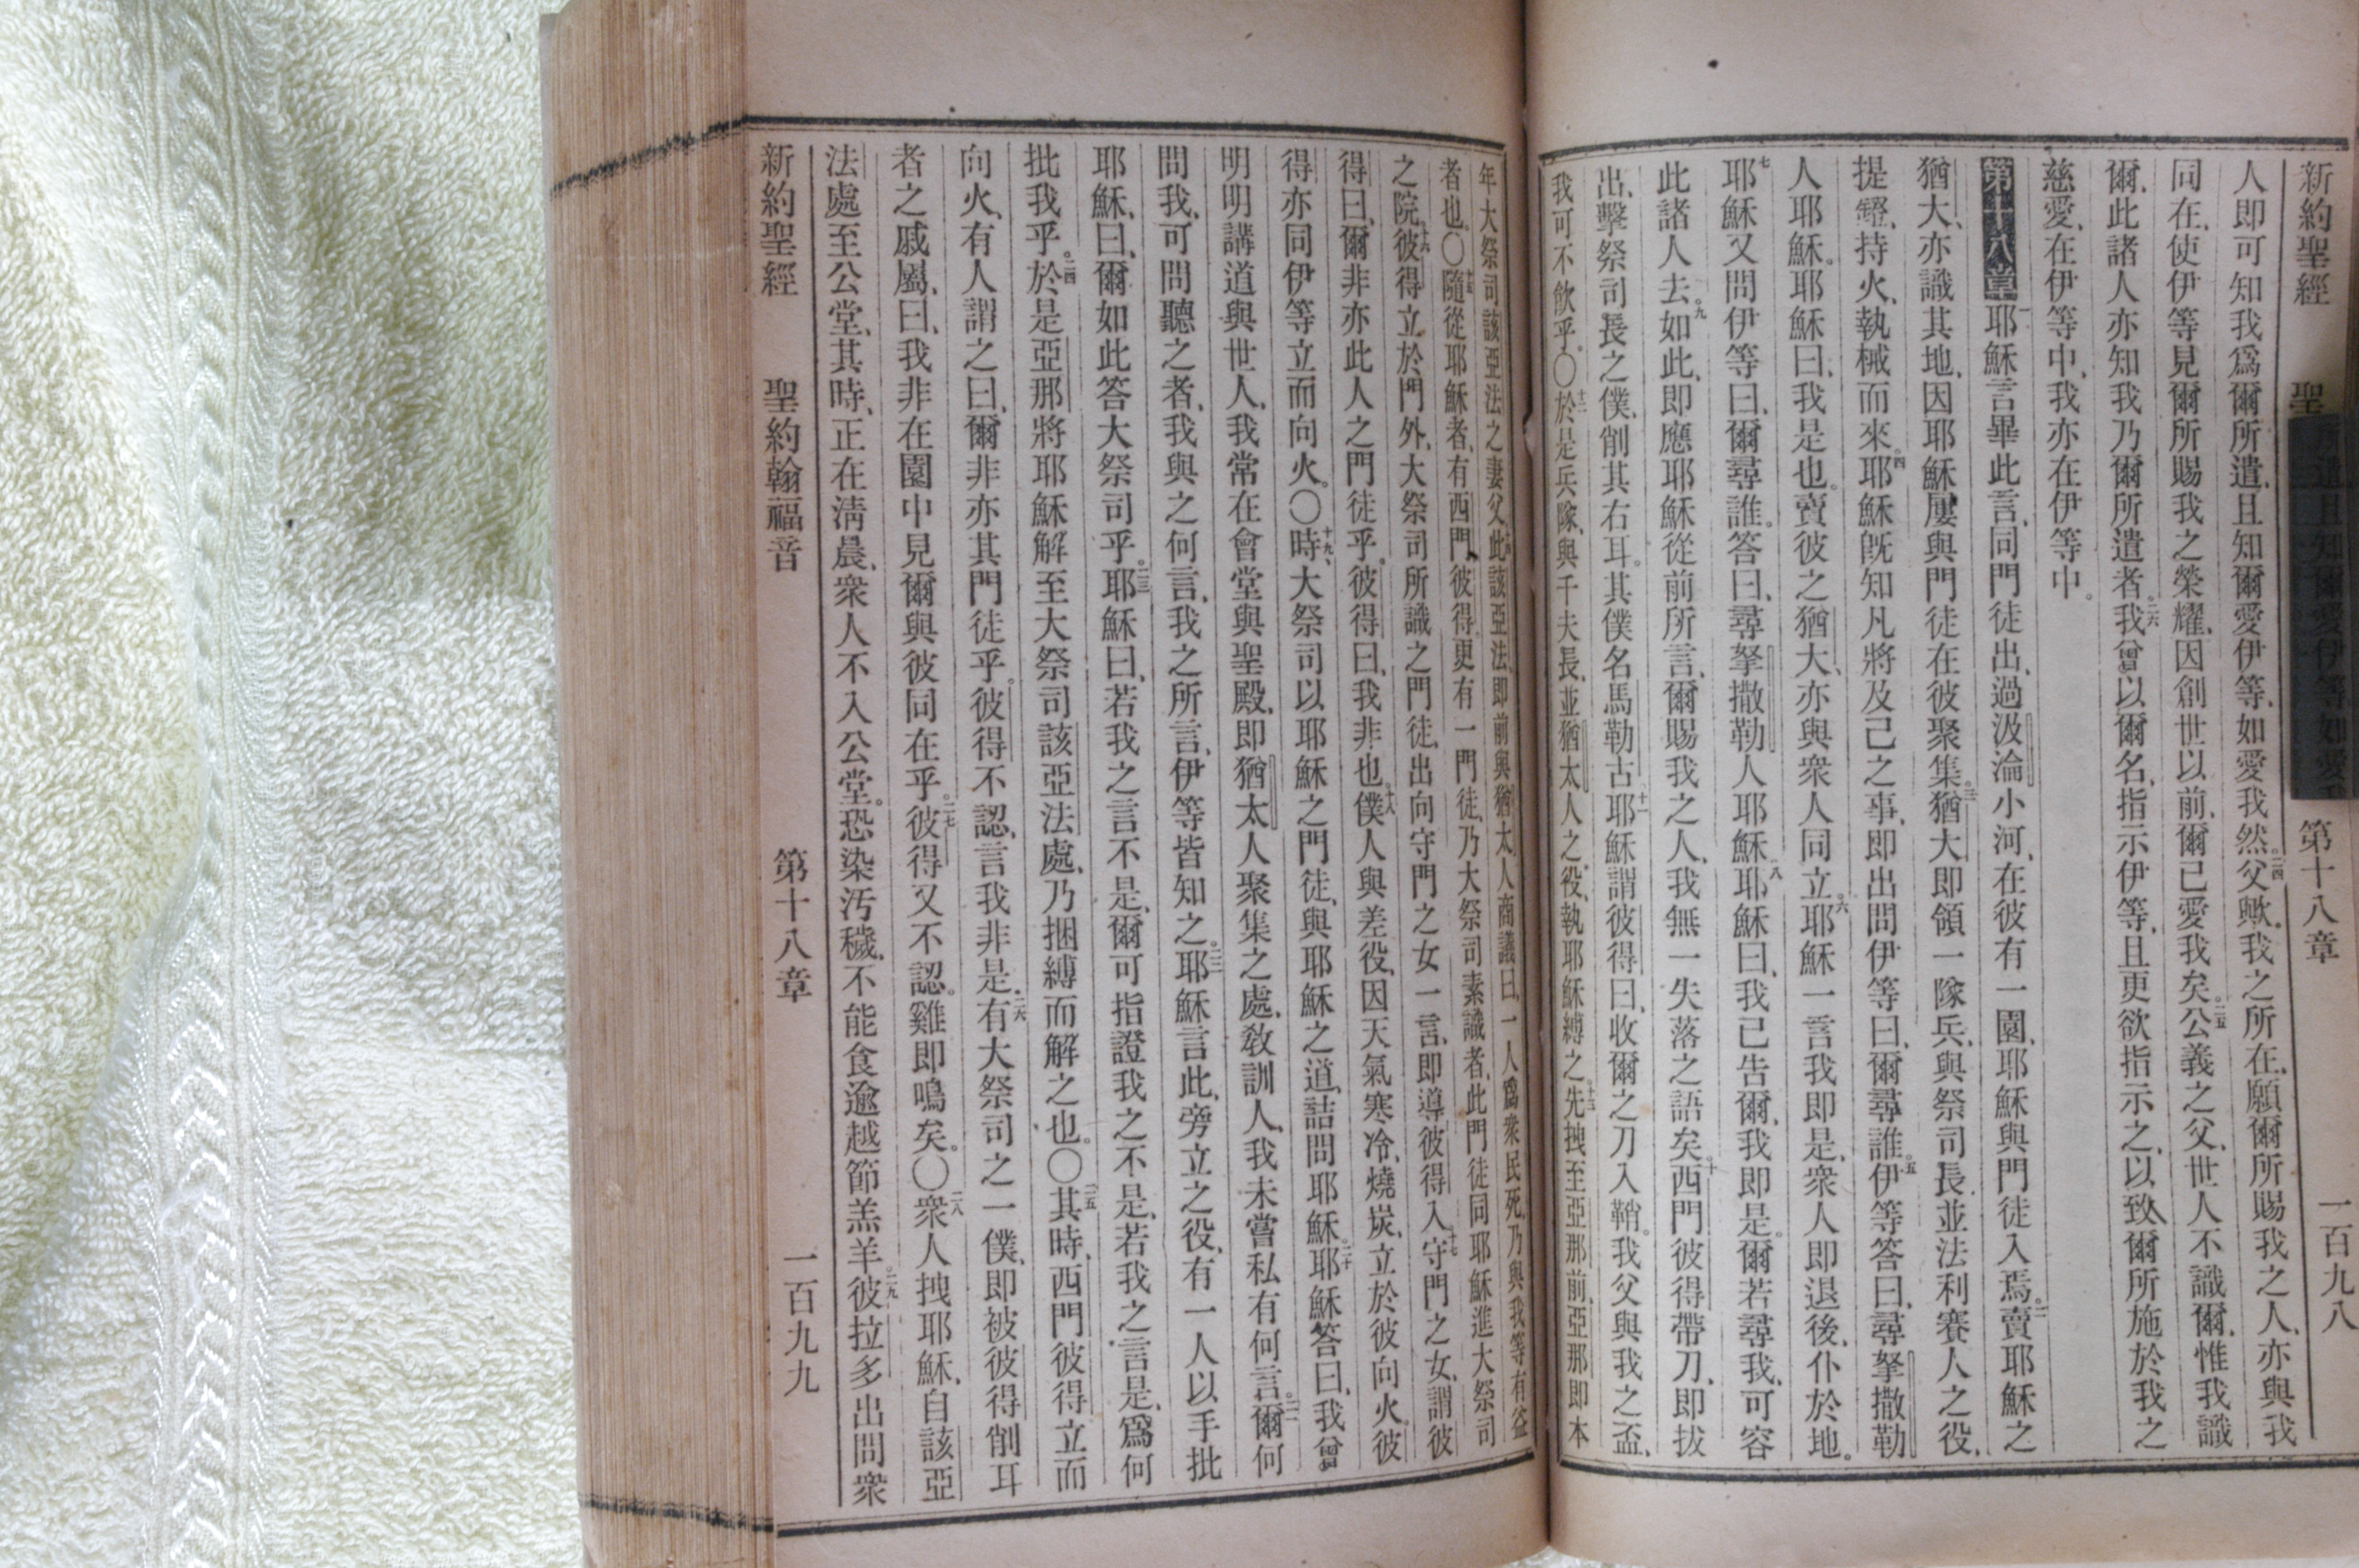 新約聖經 聖 第十八章 一百九八
所遣且知爾愛伊等如愛我
人即可知我爲爾所遣、且知爾愛伊等、如愛我然。二四父歟、我之所在、願爾所賜我之人、亦與我
同在、使伊等見爾所賜我之榮耀、因創世以前、爾已愛我矣。二五公義之父、世人不識爾、惟我識
爾、此諸人亦知我乃爾所遣者。二六我曾以爾名、指示伊等、且更欲指示之、以致爾所施於我之
慈愛、在伊等中、我亦在伊等中。
第十八章 一耶穌言畢此言、同門徒出、過汲淪小河、在彼有一園、耶穌與門徒入焉。二賣耶穌之
猶大、亦識其地、因耶穌屢與門徒在彼聚集。三猶大即領一隊兵、與祭司長、並法利賽人之役、
提鐙、持火、執械而來。四耶穌旣知凡將及己之事、即出問伊等曰、爾尋誰。五伊等答曰、尋拏撒勒
人耶穌。耶穌曰、我是也。賣彼之猶大、亦與衆人同立。六耶穌一言我即是、衆人即退後、仆於地。
七耶穌又問伊等曰、爾尋誰。答曰、尋拏撒勒人耶穌。八耶穌曰、我已告爾、我即是。爾若尋我、可容
此諸人去。九如此、即應耶穌從前所言、爾賜我之人、我無一失落之語矣。十西門彼得帶刀、即拔
出、擊祭司長之僕、削其右耳。其僕名馬勒古。十一耶穌謂彼得曰、收爾之刀入鞘。我父與我之盃、
我可不飲乎。〇十二於是兵隊、與千夫長、並猶太人之役、執耶穌縛之。十三先拽至亞那前、亞那即本
年大祭司該亞法之妻父。十四此該亞法、即前與猶太人商議曰、一人爲衆民死、乃與我等有益
者也。〇十五隨從耶穌者、有西門彼得、更有一門徒、乃大祭司素識者、此門徒同耶穌進大祭司
之院。十六彼得立於門外、大祭司所識之門徒、出向守門之女一言、即導彼得入。十七守門之女、謂彼
得曰、爾非亦此人之門徒乎。彼得曰、我非也。十八僕人與差役、因天氣寒冷、燒炭、立於彼向火。彼
得亦同伊等立而向火。〇十九時、大祭司以耶穌之門徒、與耶穌之道、詰問耶穌。二十耶穌答曰、我曾
明明講道與世人、我常在會堂與聖殿、即猶太人聚集之處、敎訓人、我未嘗私有何言。二一爾何
問我、可問聽之者、我與之何言、我之所言、伊等皆知之。二二耶穌言此、旁立之役、有一人以手批
耶穌、曰、爾如此答大祭司乎。二三耶穌曰、若我之言不是、爾可指證我之不是、若我之言是、爲何
批我乎。二四於是亞那將耶穌解至大祭司該亞法處、乃捆縛而解之也。〇二五其時、西門彼得立而
向火、有人謂之曰、爾非亦其門徒乎。彼得不認、言我非是。二六有大祭司之一僕、即被彼得削耳
者之戚屬、曰、我非在園中見爾與彼同在乎。二七彼得又不認。雞即鳴矣。〇二八衆人拽耶穌、自該亞
法處至公堂、其時、正在淸晨、衆人不入公堂。恐染汚穢、不能食逾越節羔羊。二九彼拉多出問衆
新約聖經 聖約翰福音 第十八章 一百九九